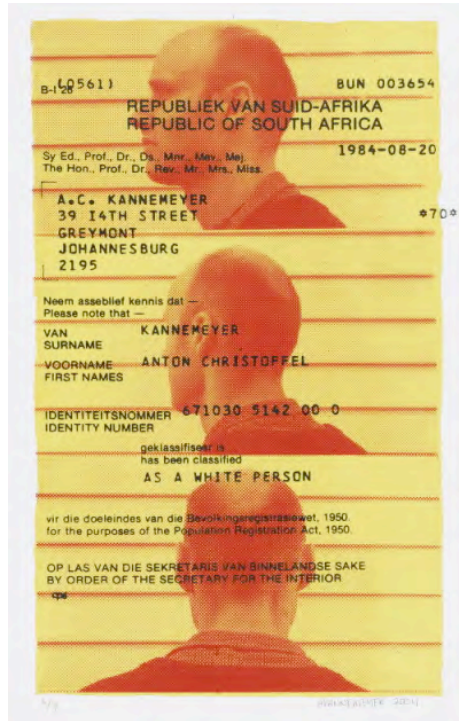 B-I 26 (0561) BUN 003654
REPUBLIEK VAN SUID-AFRIKA
REPUBLIC OF SOUTH AFRICA
1984-08-20
Sy Ed., Prof., Dr., Ds., Mnr., Mev., Mej.
The Hon., Prof., Dr., Rev., Mr., Mrs., Miss.
A.C. KANNEMEYER
39 14TH STREET
GREYMONT
JOHANNESBURG
2195
*70*
Neem asseblief kennis dat —
Please note that —
VAN KANNEMEYER
SURNAME
VOORNAME ANTON CHRISTOFFEL
FIRST NAMES
IDENTITEITSNOMMER 671030 5142 00 0
IDENTITY NUMBER
geklassifiseer is
has been classified
AS A WHITE PERSON
vir die doeleindes van die Bevolkingsregistrasiewet, 1950.
for the purposes of the Population Registration Act, 1950.
OP LAS VAN DIE SEKRETARIS VAN BINNELANDSE SAKE
BY ORDER OF THE SECRETARY FOR THE INTERIOR
cps